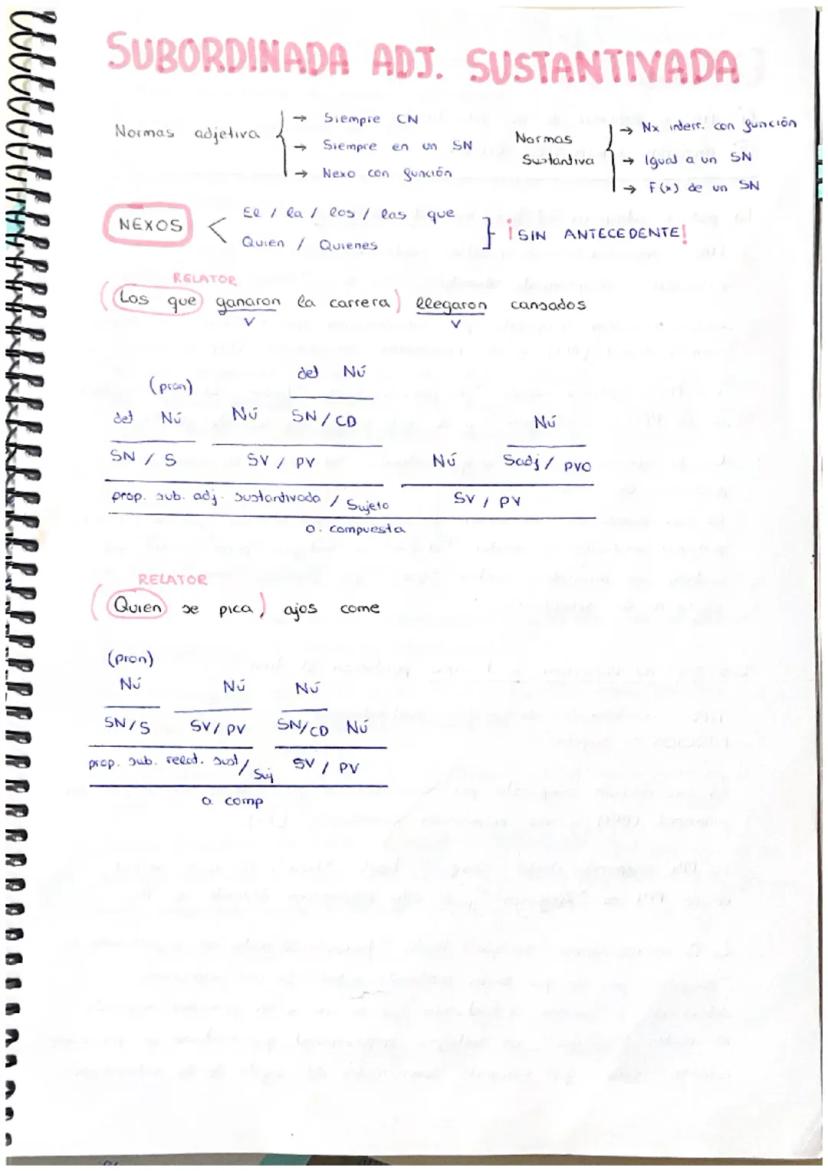 SUBORDINADA ADJ. SUSTANTIVADA
Normas adjetiva
→ Siempre CN
→ Siempre en un SN
→ Nexo con función
Normas
Sustantiva
→ Nx interr. con función
→ Igual a un SN
→ F(x) de un SN
NEXOS
El / la / los / las que
Quien / Quienes
¡SIN ANTECEDENTE!
RELATOR
(Los que ganaron la carrera) llegaron cansados
V V
det Nú
(pron)
det Nú Nú SN/CD Nú
SN / S SV / PV Nú Sadj / PVO
prop. sub. adj. sustantivada / Sujeto SV / PV
o. compuesta
RELATOR
(Quien se pica) ajos come
(pron)
Nú Nú Nú
SN/S SV/PV SN/CD Nú
prop. sub. relat. sust / Suj SV / PV
o. comp